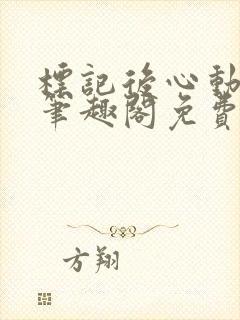 標記後心動
筆趣閣免費
方翔